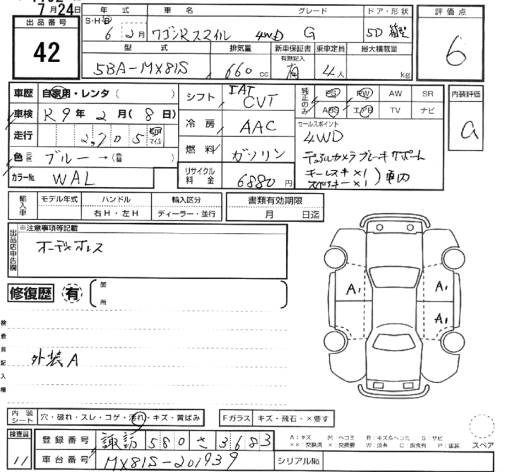 7月24日
出品番号
42
年式 車名 グレード ドア・形状
S・H・R 6年2月 ワゴンRスマイル 4WD G 5D 箱型
型式 排気量 新車保証書 乗車定員 最大積載量
有無記入
5BA-MX81S 660cc 有 4人 kg
評価点
6
車歴 自家用・レンタ( )
車検 R9年2月(8日)
走行 2,705 km マイル
色 ブルー→( )
カラーNo. WAL
シフト IAT CVT
冷房 AAC
燃料 ガソリン
リサイクル料金 6880円
純正のみ PS PW AW SR
ABS エアB TV ナビ
セールスポイント
4WD
デュアルカメラブレーキサポート
キーレスキー×1
スペアキー×1 )車内
内装評価
a
輸入車 モデル年式 ハンドル 輸入区分
右H・左H ディーラー・並行
書類有効期限
月 日迄
出品店申告欄
※注意事項等記載
オーディオレス
修復歴 有 箇所
検査員記入欄
外装A
A1
A1
A1
内装シート 穴・破れ・スレ・コゲ・汚れ・キズ・黄ばみ
Fガラス キズ・飛石・×要す
検査員
11
登録番号 諏訪580さ3683
車台番号 MX81S-201939
シリアルNo.
A:キズ
スペア